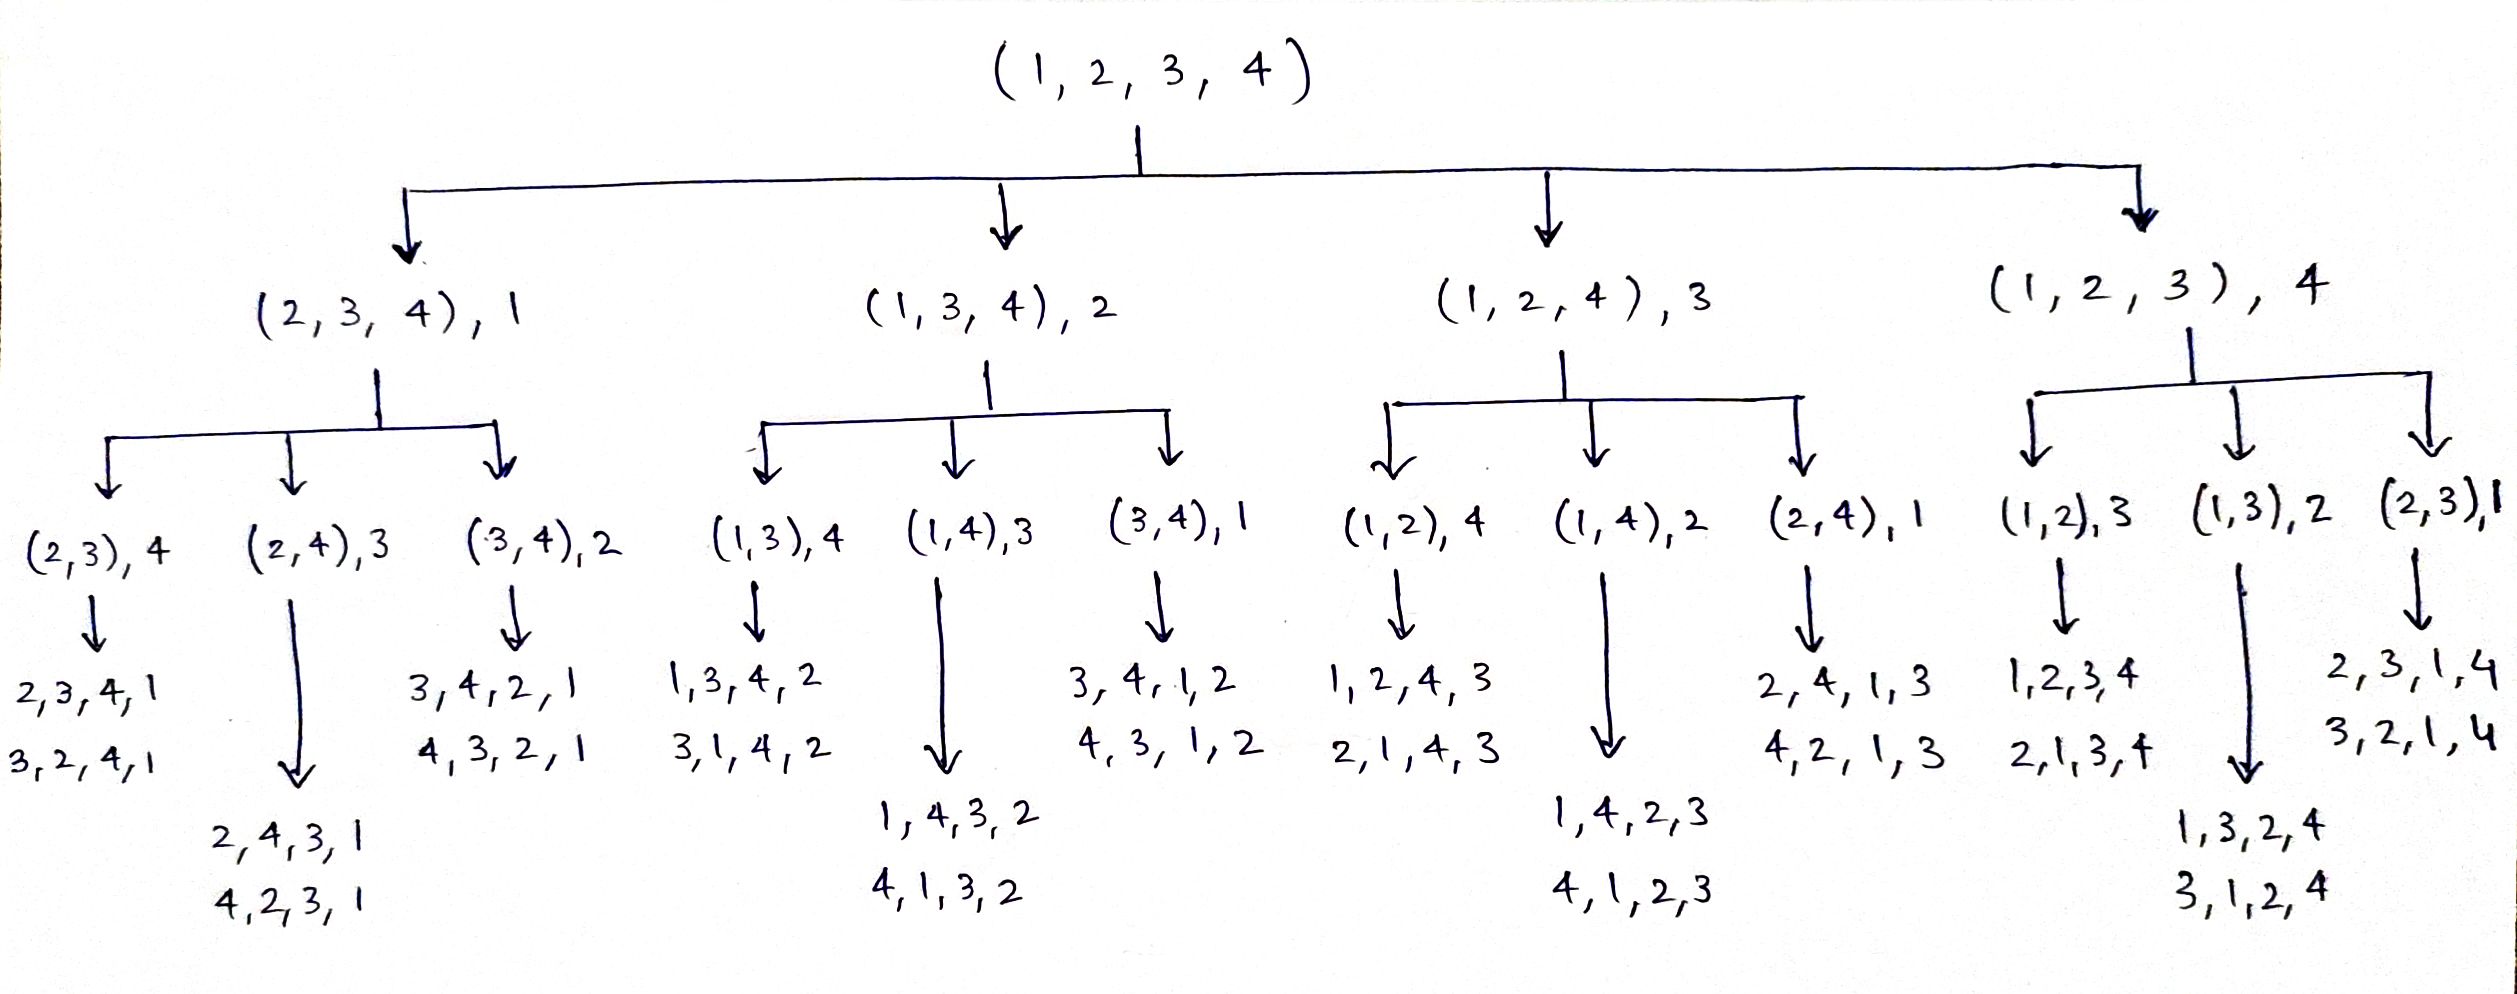 (1, 2, 3, 4)
(2, 3, 4), 1
(1, 3, 4), 2
(1, 2, 4), 3
(1, 2, 3), 4
(2,3), 4
(2,4),3
(3,4),2
(1,3),4
(1,4),3
(3,4), 1
(1,2), 4
(1, 4), 2
(2,4), 1
(1,2), 3
(1,3), 2
(2,3),1
2,3,4,1
3,2,4,1
2,4,3,1
4,2,3,1
3,4,2,1
4,3,2,1
1,3,4,2
3,1,4,2
1,4,3,2
4,1,3,2
3,4,1,2
4,3,1,2
1,2,4,3
2,1,4,3
1,4,2,3
4,1,2,3
2,4,1,3
4,2,1,3
1,2,3,4
2,1,3,4
1,3,2,4
3,1,2,4
2,3,1,4
3,2,1,4